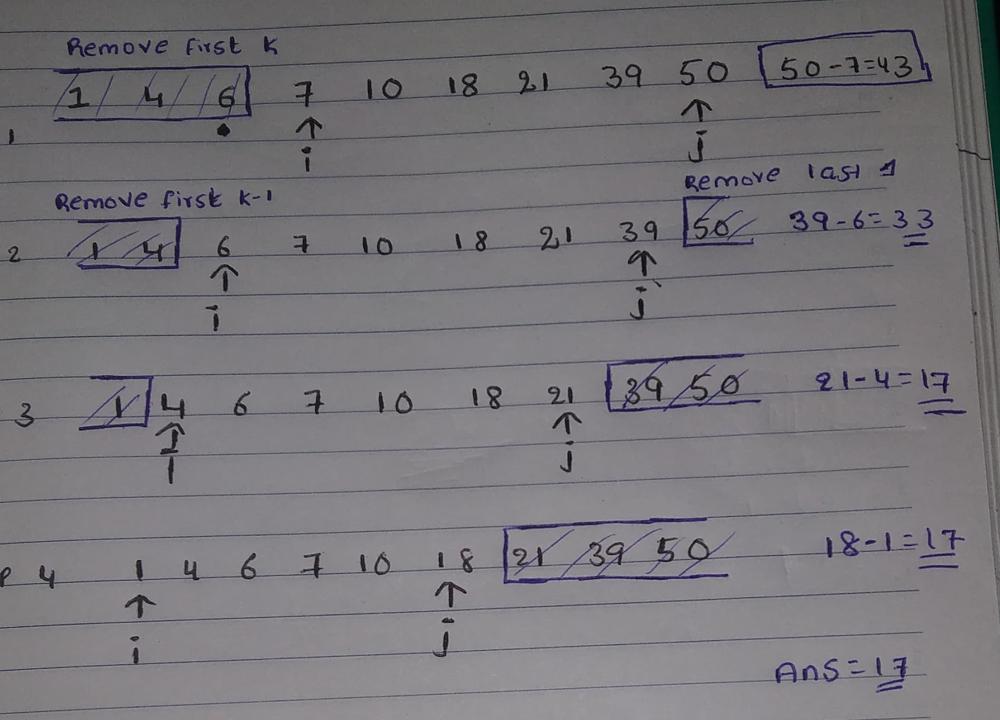 Remove first K
1 4 6 7 10 18 21 39 50 50-7=43
1
i j
Remove first K-1 Remove last 1
2 1 4 6 7 10 18 21 39 50 39-6=33
i j
3 1 4 6 7 10 18 21 39 50 21-4=17
i j
4 1 4 6 7 10 18 21 39 50 18-1=17
i j
Ans=17